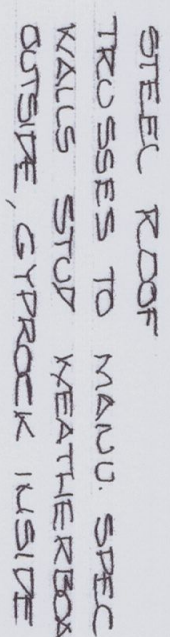 STEEL ROOF
TRUSSES TO MANU. SPEC
WALLS STUD WEATHERBOA
OUTSIDE, GYPROCK INSIDE